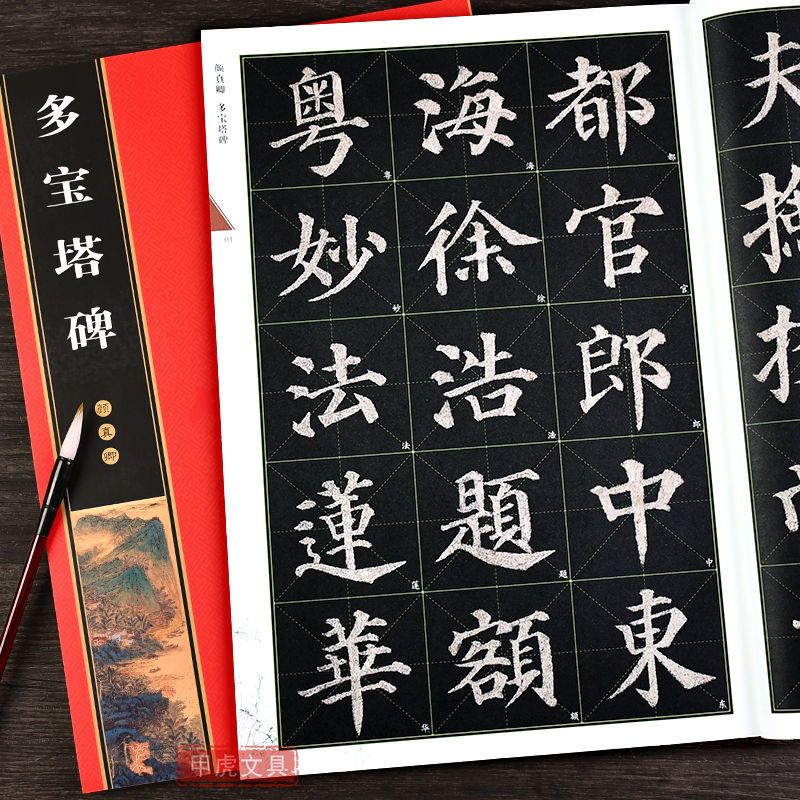 多宝塔碑
颜真卿
颜真卿 多宝塔碑
04
都官郎中東
都官郎中东
海徐浩題額
海徐浩题额
粤妙法蓮華
粤妙法莲华
夫
甲虎文具